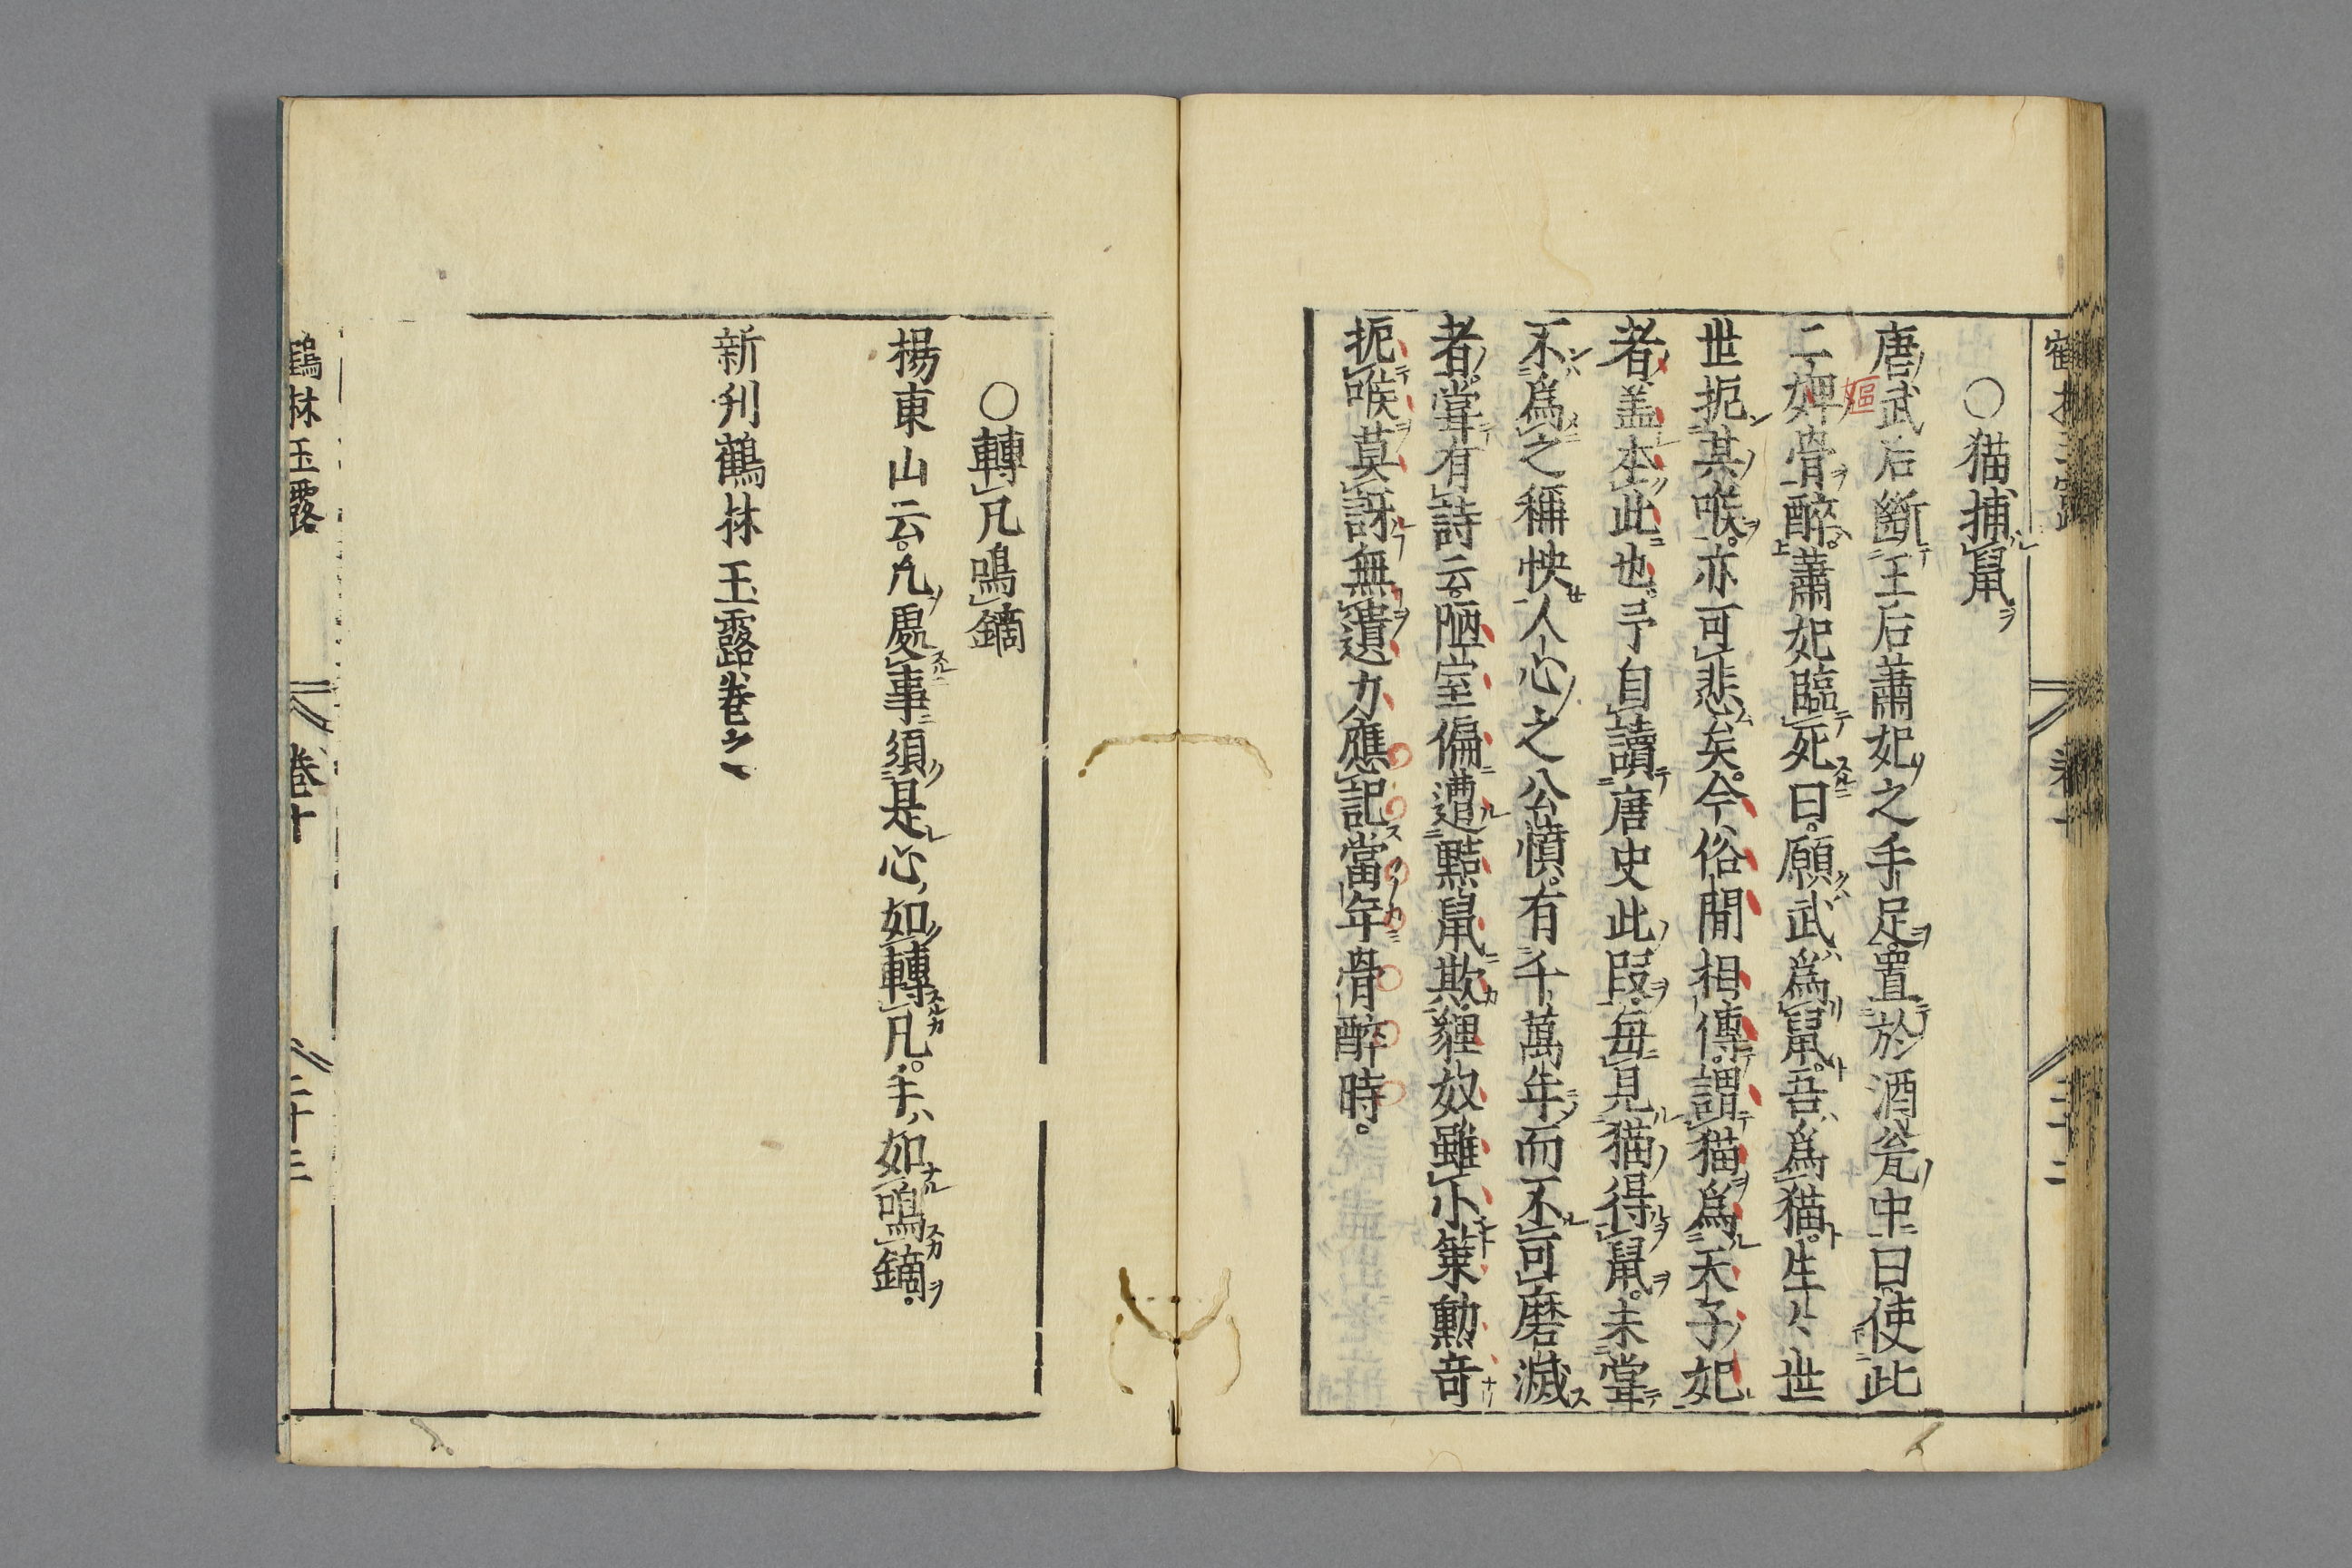 ○猫捕鼠
唐武后斷王后蕭妃之手足。置於酒瓮中曰。使此
二婢骨醉。蕭妃臨死曰。願武爲鼠。吾爲猫。生〻世
嫗
世扼其喉。亦可悲矣。今俗間相傳。謂猫爲天子妃
者。盖本此也。予自讀唐史此段。毎見猫得鼠。未甞
不爲之稱快。人心之公憤。有千萬年而不可磨滅
者。甞有詩云。陋室偏遭黠鼠欺。貍奴雖小策勳竒
扼喉莫訝無遺力。應記當年骨醉時。
○轉凡鳴鏑
楊東山云。凡處事須是心如轉凡。手如鳴鏑。
新刋鶴林玉露巻之
鶴林玉露 巻十 二十三